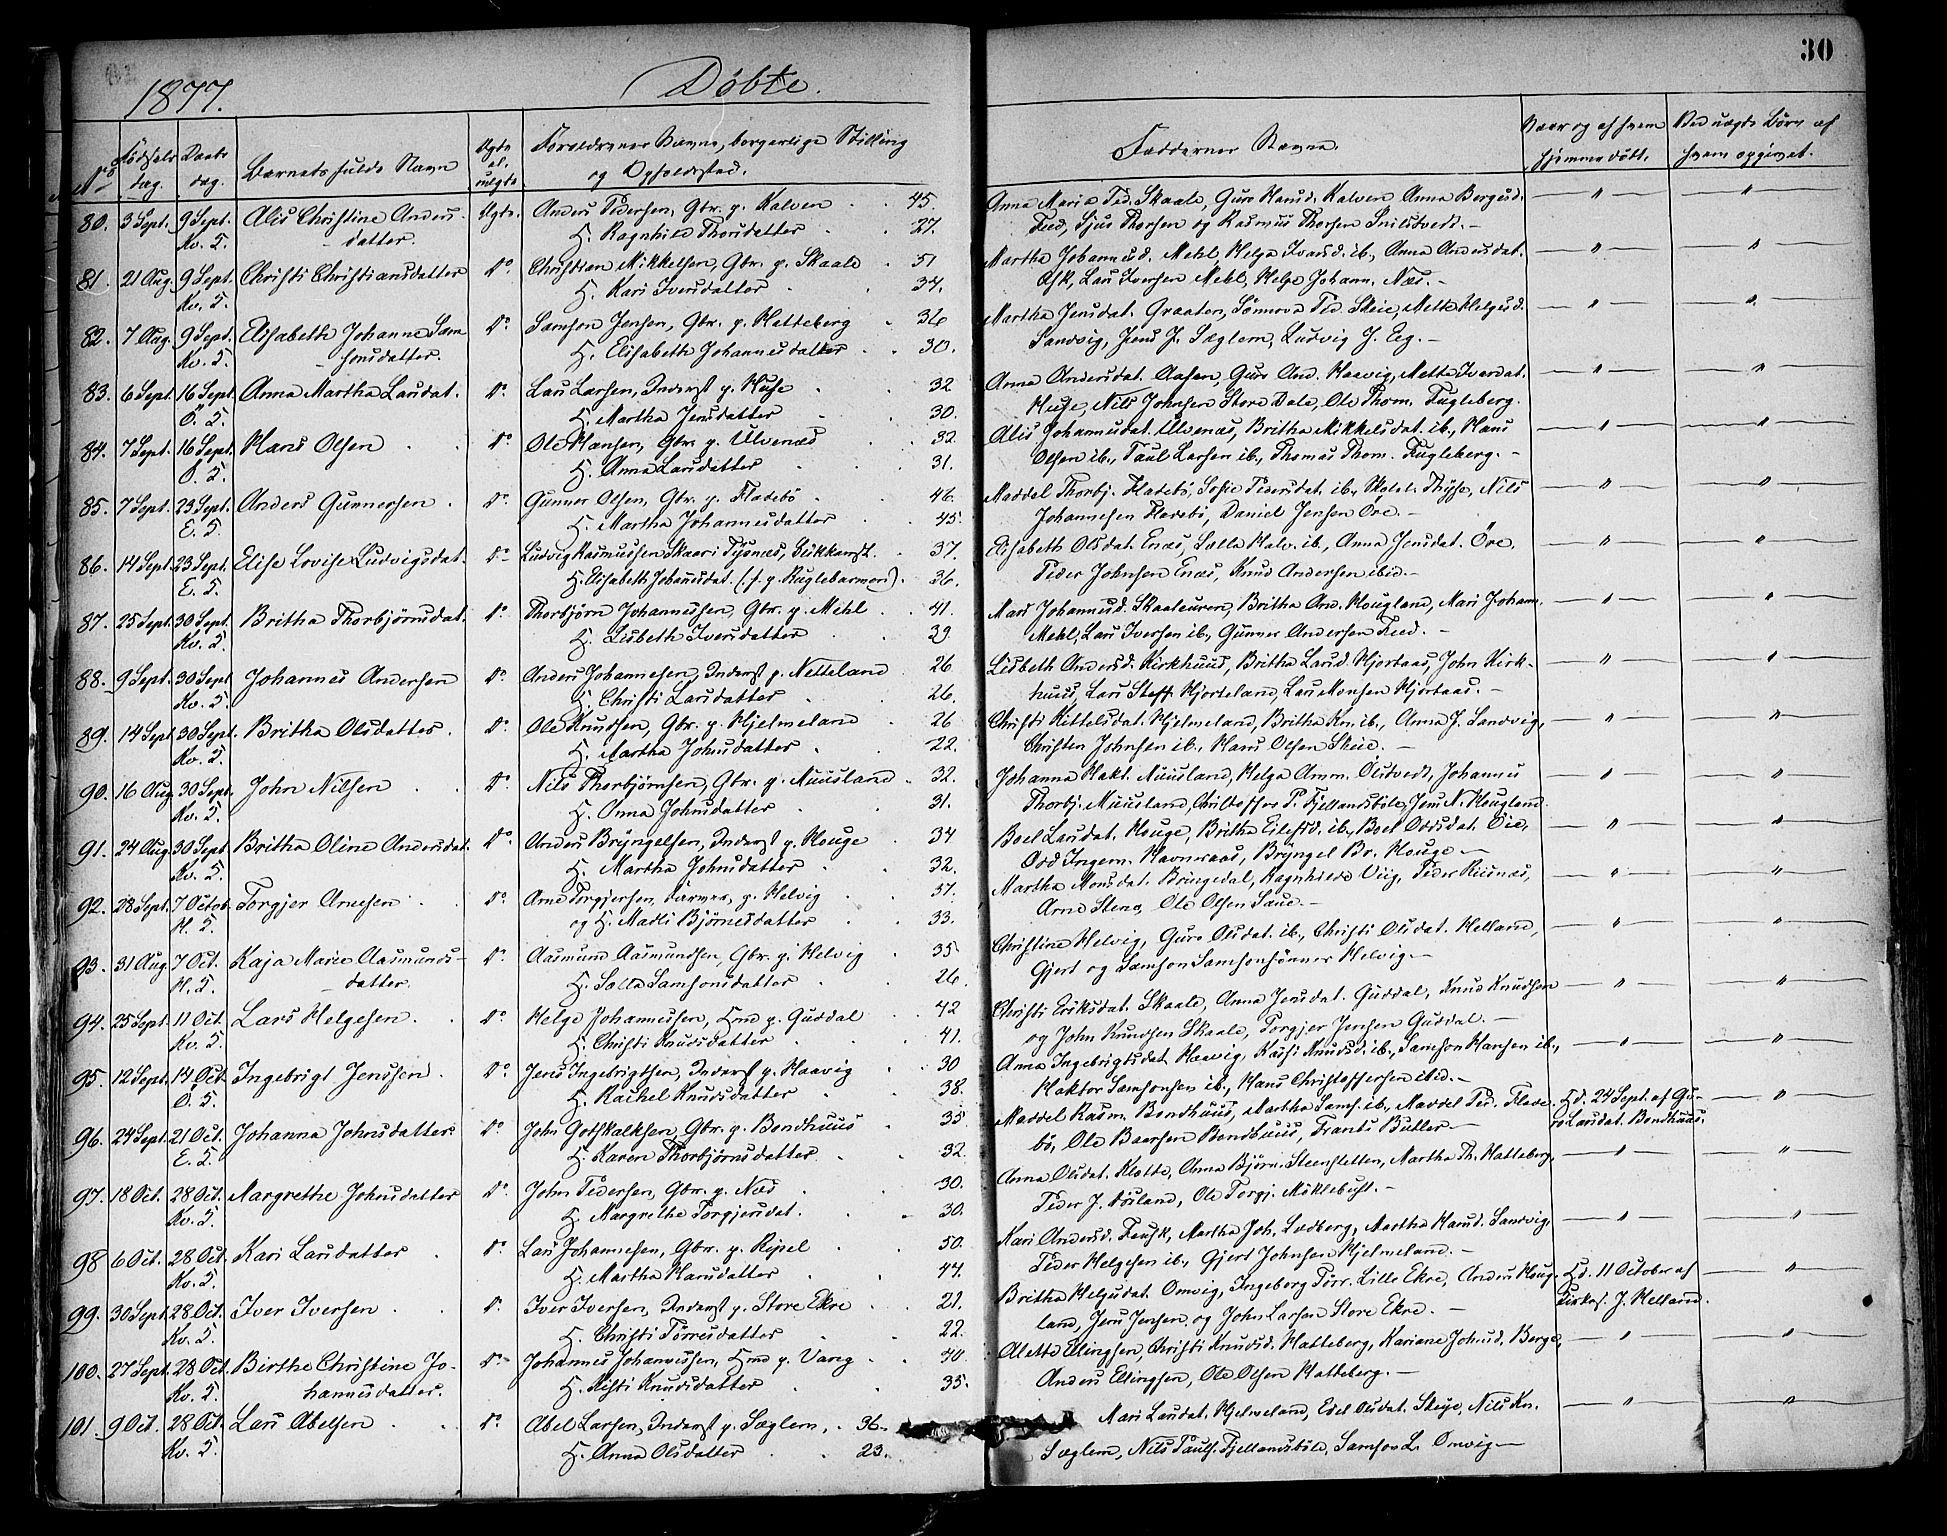 30
1877. Döbte.
No. Födsels dag. Daabs dag. Barnets fulde Navn Ægte el. uægte Forældrenes Navne, borgerlige Stilling og Opholdssted. Faddernes Navne. Naar og af hvem hjemmedöbt. Ved uægte Börn af hvem opgivet.
80. 3 Sept. 9 Sept. Alis Christine Anders- Ægte. Anders Pedersen, Gbr. p. Kalven 45. Anna Maria Ped. Skaale, Guro Hansd. Kalven Anna Borgesd.
Kv. S. datter. H. Ragnhild Thorsdatter 27. Feed, Sjur Thorsen og Rasmus Thorsen Snilstvedt.
81. 21 Aug. 9 Sept. Christi Christiansdatter Do Christian Mikkelsen, Gbr. p. Skaale 51 Martha Johannesd. Mehl, Helga Ivarsd. ib., Anna Andersdat.
Kv. S. H. Kari Iversdatter 34. Ask, Lars Iversen Mehl, Helge Johann. Næs.
82. 7 Aug. 9 Sept. Elisabeth Johanne Sam- Do Samson Jensen, Gbr. p. Hatteberg 36 Martha Jensdat. Graaten, Sönneva Ped. Skeie, Mette Helgesd.
Kv. S. sonsdatter. H. Elisabeth Johannesdatter 30. Sandvig, Jens J. Sæglem, Ludvig J. Eeg.
83. 6 Sept. 16 Sept. Anna Martha Larsdat. Do Lars Larsen, Inderst p. Huse 32 Anna Andersdat. Aasen, Guro And. Haavig, Mette Iversdat.
Ö. S. H. Martha Jensdatter 30. Huse, Nils Johnsen Store Dale, Ole Thom. Fugleberg.
84. 7 Sept. 16 Sept. Hans Olsen Do Ole Hansen, Gbr. p. Ulvenæs 32. Alis Johannesdat. Ulvenæs, Britha Mikkelsdat. ib., Hans
Ö. S. H. Anna Larsdatter 31. Olsen ib., Paul Larsen ib., Thomas Thom. Fugleberg.
85. 7 Sept. 23 Sept. Anders Gunnersen Do Gunner Olsen, Gbr. p. Fladebö 46. Maddel Thorbj. Fladebö, Sofie Pedersdat. ib., Nils
E. S. H. Martha Johannesdatter 45. Johannesen Fladebö, Daniel Jensen Öre.
86. 14 Sept. 23 Sept. Elise Lovise Ludvigsdat. Do Ludvig Rasmussen Skaar i Tysnæs, 37. Elisabeth Olsdat. Enæs, Salla Halv. ib., Anna Jensdat. Öre,
E. S. H. Elisabeth Johannesdat. 36. Peder Johnsen Enæs, Knud Andersen ibid.
87. 25 Sept. 30 Sept. Britha Thorbjörnsdat. Do Thorbjörn Johannessen, Gbr. p. Mehl 41. Mari Johannesd. Skaaleuren, Britha And. Hougland, Mari Johann.
Kv. S. H. Lisbeth Iversdatter 29. Mehl, Lars Iversen ib., Gunner Andersen Feed.
88. 9 Sept. 30 Sept. Johannes Andersen Do Anders Johannesen, Inderst p. Netteland 26 Lisbeth Andersd. Kirkhuus, Britha Larsd. Hjortaas, John Kirk-
Kv. S. H. Christi Larsdatter 26. huus, Lars Steff. Hjorteland, Lars Monsen Hjortaas.
89. 14 Sept. 30 Sept. Britha Olsdatter. Do Ole Knudsen, Gbr. p. Hjelmeland 26 Christi Kittelsdat. Hjelmeland, Britha Kn. ib., Anna J. Sandvig,
Kv. S. H. Martha Johnsdatter 22. Christen Johnsen ib., Hans Olsen Skeie.
90. 16 Aug. 30 Sept. John Nilsen Do Nils Thorbjörnsen, Gbr. p. Muusland 32. Johanna Hakt. Muusland, Helga Amm. Ölstvedt, Johannes
Kv. S. H. Anna Johnsdatter 31. Thorbj. Muusland, Christoffer P. Fjellandsböle, Jens N. Hougland.
91. 24 Aug. 30 Sept. Britha Oline Andersdat. Do Anders Bryngelsen, Inderst p. Houge 34 Boel Larsdat. Houge, Britha Eilefsd. ib., Boel Oddsdat. Öie,
Kv. S. H. Martha Johnsdatter 32. Odd Ingem. Havneraas, Bryngel Br. Houge
92. 28 Sept. 7 Octob. Torgjer Arnesen Do Arne Torgjersen, p. Helvig 37. Martha Monsdat. Bringedal, Ragnhilde Viig, Peder Riisnæs,
H. S. og H. Madli Björnesdatter 33. Arne Stene, Ole Olsen Saue.
93. 31 Aug. 7 Oct. Kaja Marie Aasmunds- Do Aasmund Aasmundsen, Gbr. p. Helvig 35 Christine Helvig, Guro Olsdat. ib., Christi Olsdat. Helland,
H. S. datter. H. Salla Samsonsdatter 26. Gjert og Samson Samsonsönner Helvig.
94. 25 Sept. 11 Oct. Lars Helgesen. Do Helge Johannessen, Hmd p. Guddal 42 Christi Eriksdat. Skaale, Anna Jensdat. Guddal, Knud Knudsen
Kv. S. H. Christi Knudsdatter 41. og John Knudsen Skaale, Torgjer Jensen Guddal.
95. 12 Sept. 14 Oct. Ingebrigt Jenssen. Do Jens Ingebrigtsen, Inderst p. Haavig 30 Anna Ingebrigtsdat. Haavig, Kassi Knudsd. ib., Samson Hansen ib.,
Ö. S. H. Rachel Knudsdatter 38. Haktor Samsonsen ib., Hans Christoffersen ibid.
96. 24 Sept. 21 Oct. Johanna Johnsdatter. Do John Gotskalksen, Gbr. p. Bondhuus 35 Maddel Rasm. Bondhuus, Martha Sams. ib., Maddel Ped. Flade- Hd. 24 Sept. af Gu-
E. S. H. Karen Thorbjörnsdatter 32. bö, Ole Baarsen Bondhuus, Frants Butler ro Larsdat. Bondhuus.
97. 18 Oct. 28 Oct. Margrethe Johnsdatter Do John Pedersen, Gbr. p. Næs 30. Anna Olsdat. Klette, Anna Björn. Steensletten, Martha Th. Hatteberg,
Kv. S. H. Margrethe Torgjersdat. 30. Peder J. Aasland, Ole Torgj. Möklebust.
98 6 Oct. 28 Oct. Kari Larsdatter Do Lars Johannesen, Gbr. p. Ripel 50. Kari Andersd. Fensk, Martha Joh. Ladberg, Martha Hansd. Sandvig,
Kv. S. H. Martha Hansdatter 44. Peder Helgesen ib., Gjert Johnsen Hjelmeland.
99. 30 Sept. 28 Oct. Iver Iversen Do Iver Iversen, Inderst p. Store Ekre 21. Britha Helgesdat. Omvig, Ingeborg Törr. Lille Ekre, Anders Houg- Hd. 11 October af
Kv. S. H. Christi Törresdatter 22. land, Jens Jensen og John Larsen Store Ekre. Kirkes. J. Helland.
100. 27 Sept. 28 Oct. Birthe Christine Jo- Do Johannes Johannessen, Hmd p. Vang 40. Alette Ellingsen, Christi Knudsd. Hatteberg, Kariane Johnsd. Berge,
Kv. S. hannesdatter. H. Kisti Knudsdatter 35. Anders Ellingsen, Ole Olsen Hatteberg.
101. 9 Oct. 28 Oct. Lars Abelsen Do Abel Larsen, Inderst p. Sæglem, 36. Mari Larsdat. Hjelmeland, Edel Olsdat. Skeie, Nils Kn.
Kv. S. H. Anna Olsdatter 23. Sæglem, Nils Pauls. Fjellandsböle, Samson L. Omvig